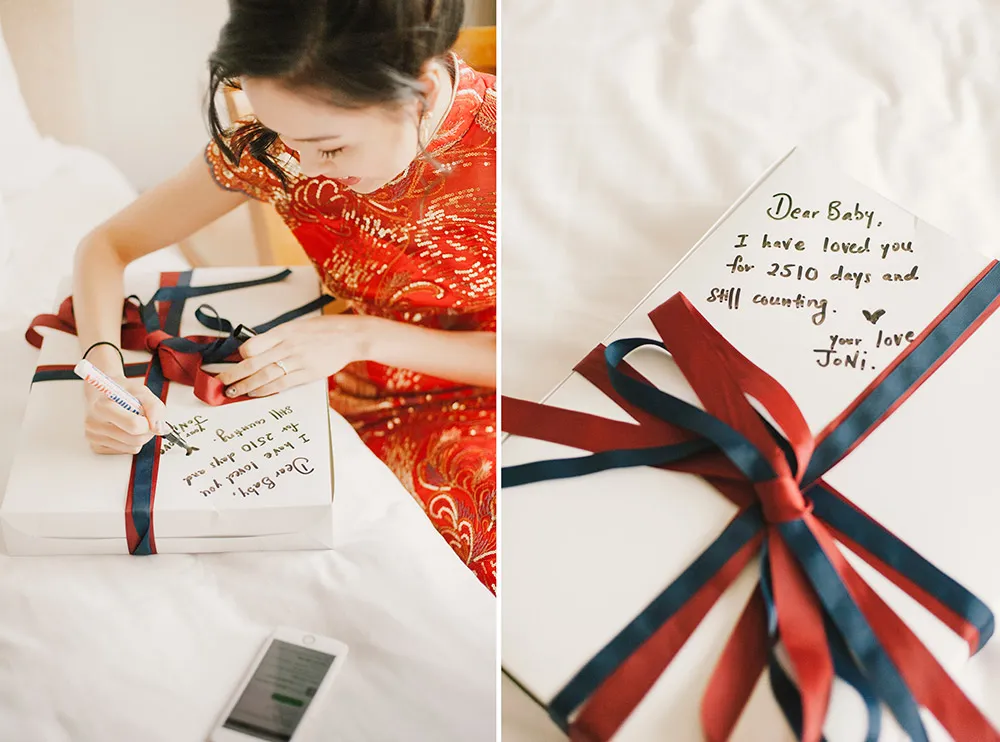 Dear Baby,
I have loved you
for 2510 days and
still counting
your love
JoNi
Dear Baby,
I have loved you
for 2510 days and
still counting. ♥
your love
JoNi.